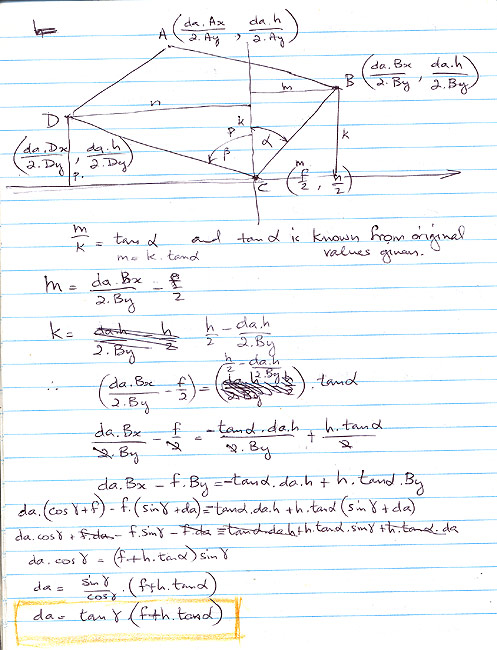 4
A (da.Ax/2.Ay, da.h/2.Ay)
B (da.Bx/2.By, da.h/2.By)
n
m
D
k
k
P
α
β
(da.Dx/2.Dy, da.h/2.Dy)
C (f/2, h/2)
m/k = tan α and tan α is known from original
m = k. tan α values given.
m = da.Bx/2.By - f/2
k = da.h/2.By h/2 h/2 - da.h/2.By
∴ (da.Bx/2.By - f/2) = (h/2 - da.h/2.By) . tan α
da.Bx/2.By - f/2 = -tan α . da.h/2.By + h. tan α/2
da.Bx - f.By = -tan α. da.h + h. tan α. By
da.(cos γ + f) - f.(sin γ + da) = tan α. da.h + h. tan α (sin γ + da)
da.cos γ + f.da - f.sin γ - f.da = tan α.da.h + h.tan α. sin γ + h.tan α. da
da. cos γ = (f + h. tan α) sin γ
da = sin γ/cos γ . (f + h. tan α)
da = tan γ. (f + h. tan α)